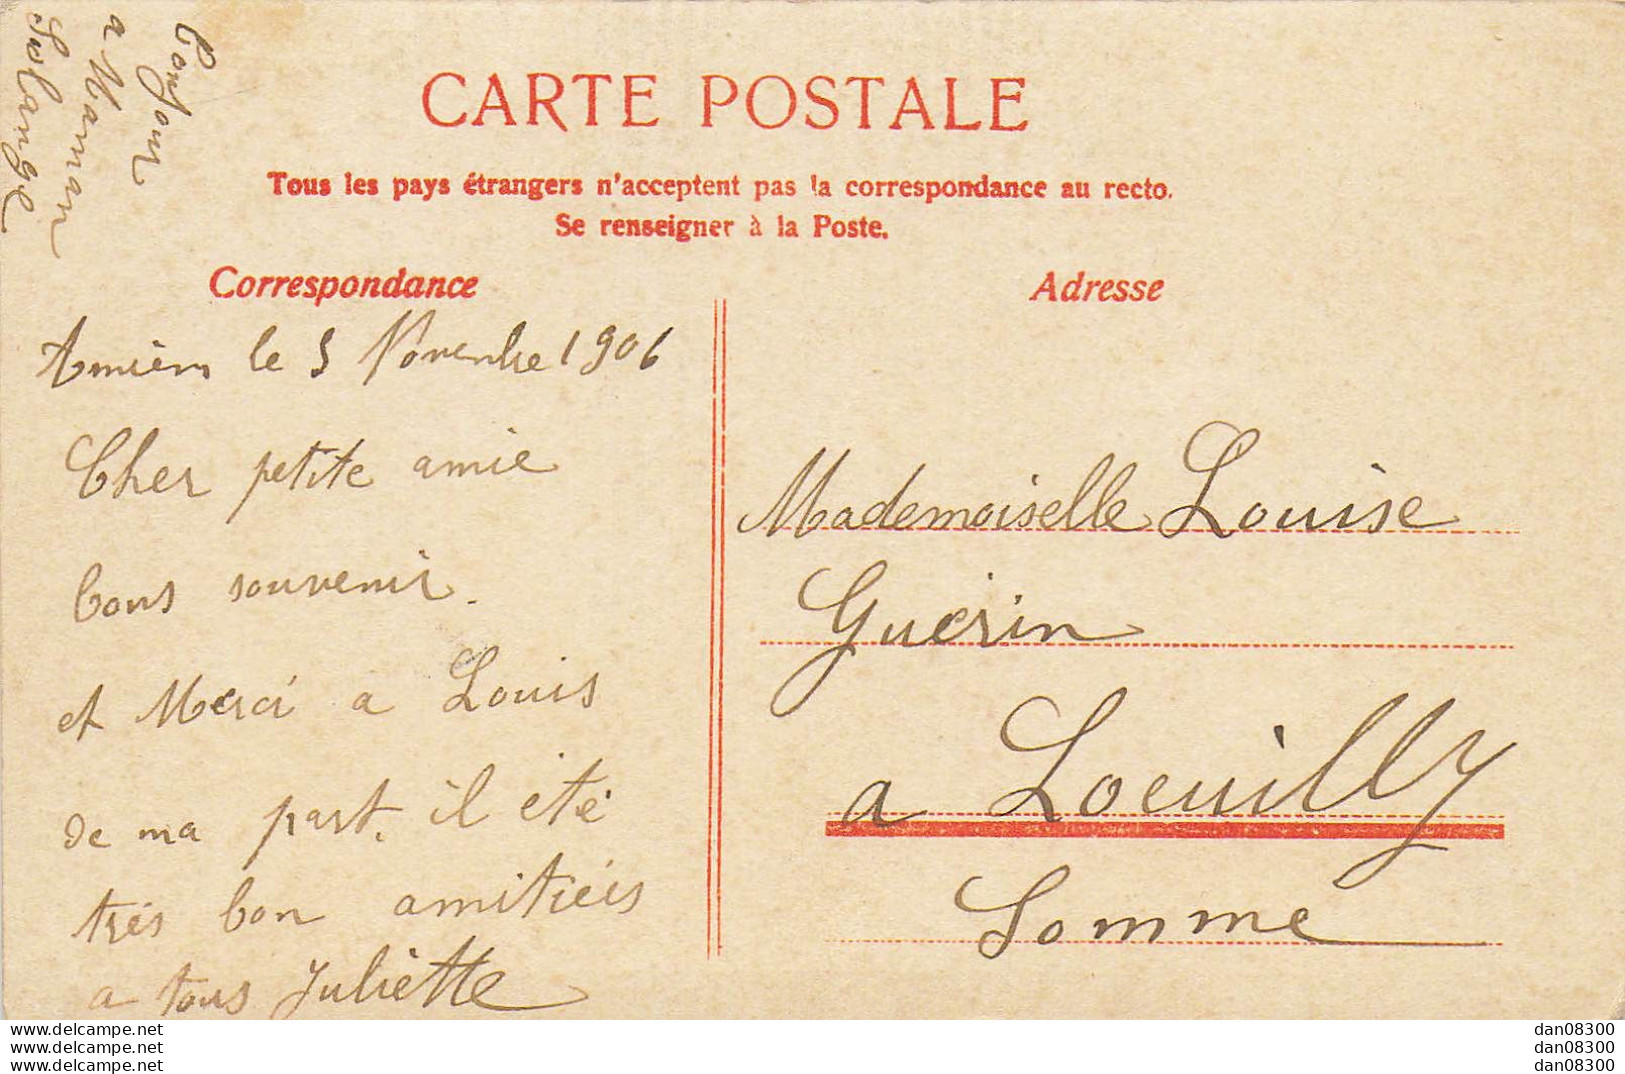 Bonjour
a Maman
Solange
CARTE POSTALE
Tous les pays étrangers n'acceptent pas la correspondance au recto.
Se renseigner à la Poste.
Correspondance
Adresse
Amiens le 5 Novembre 1906
Cher petite amie
bons souvenir.
et Merci a Louis
de ma part. il été
trés bon amitiées
a tous Juliette
Mademoiselle Louise
Guerin
a Loeuilly
Somme
www.delcampe.net
www.delcampe.net
www.delcampe.net
dan08300
dan08300
dan08300